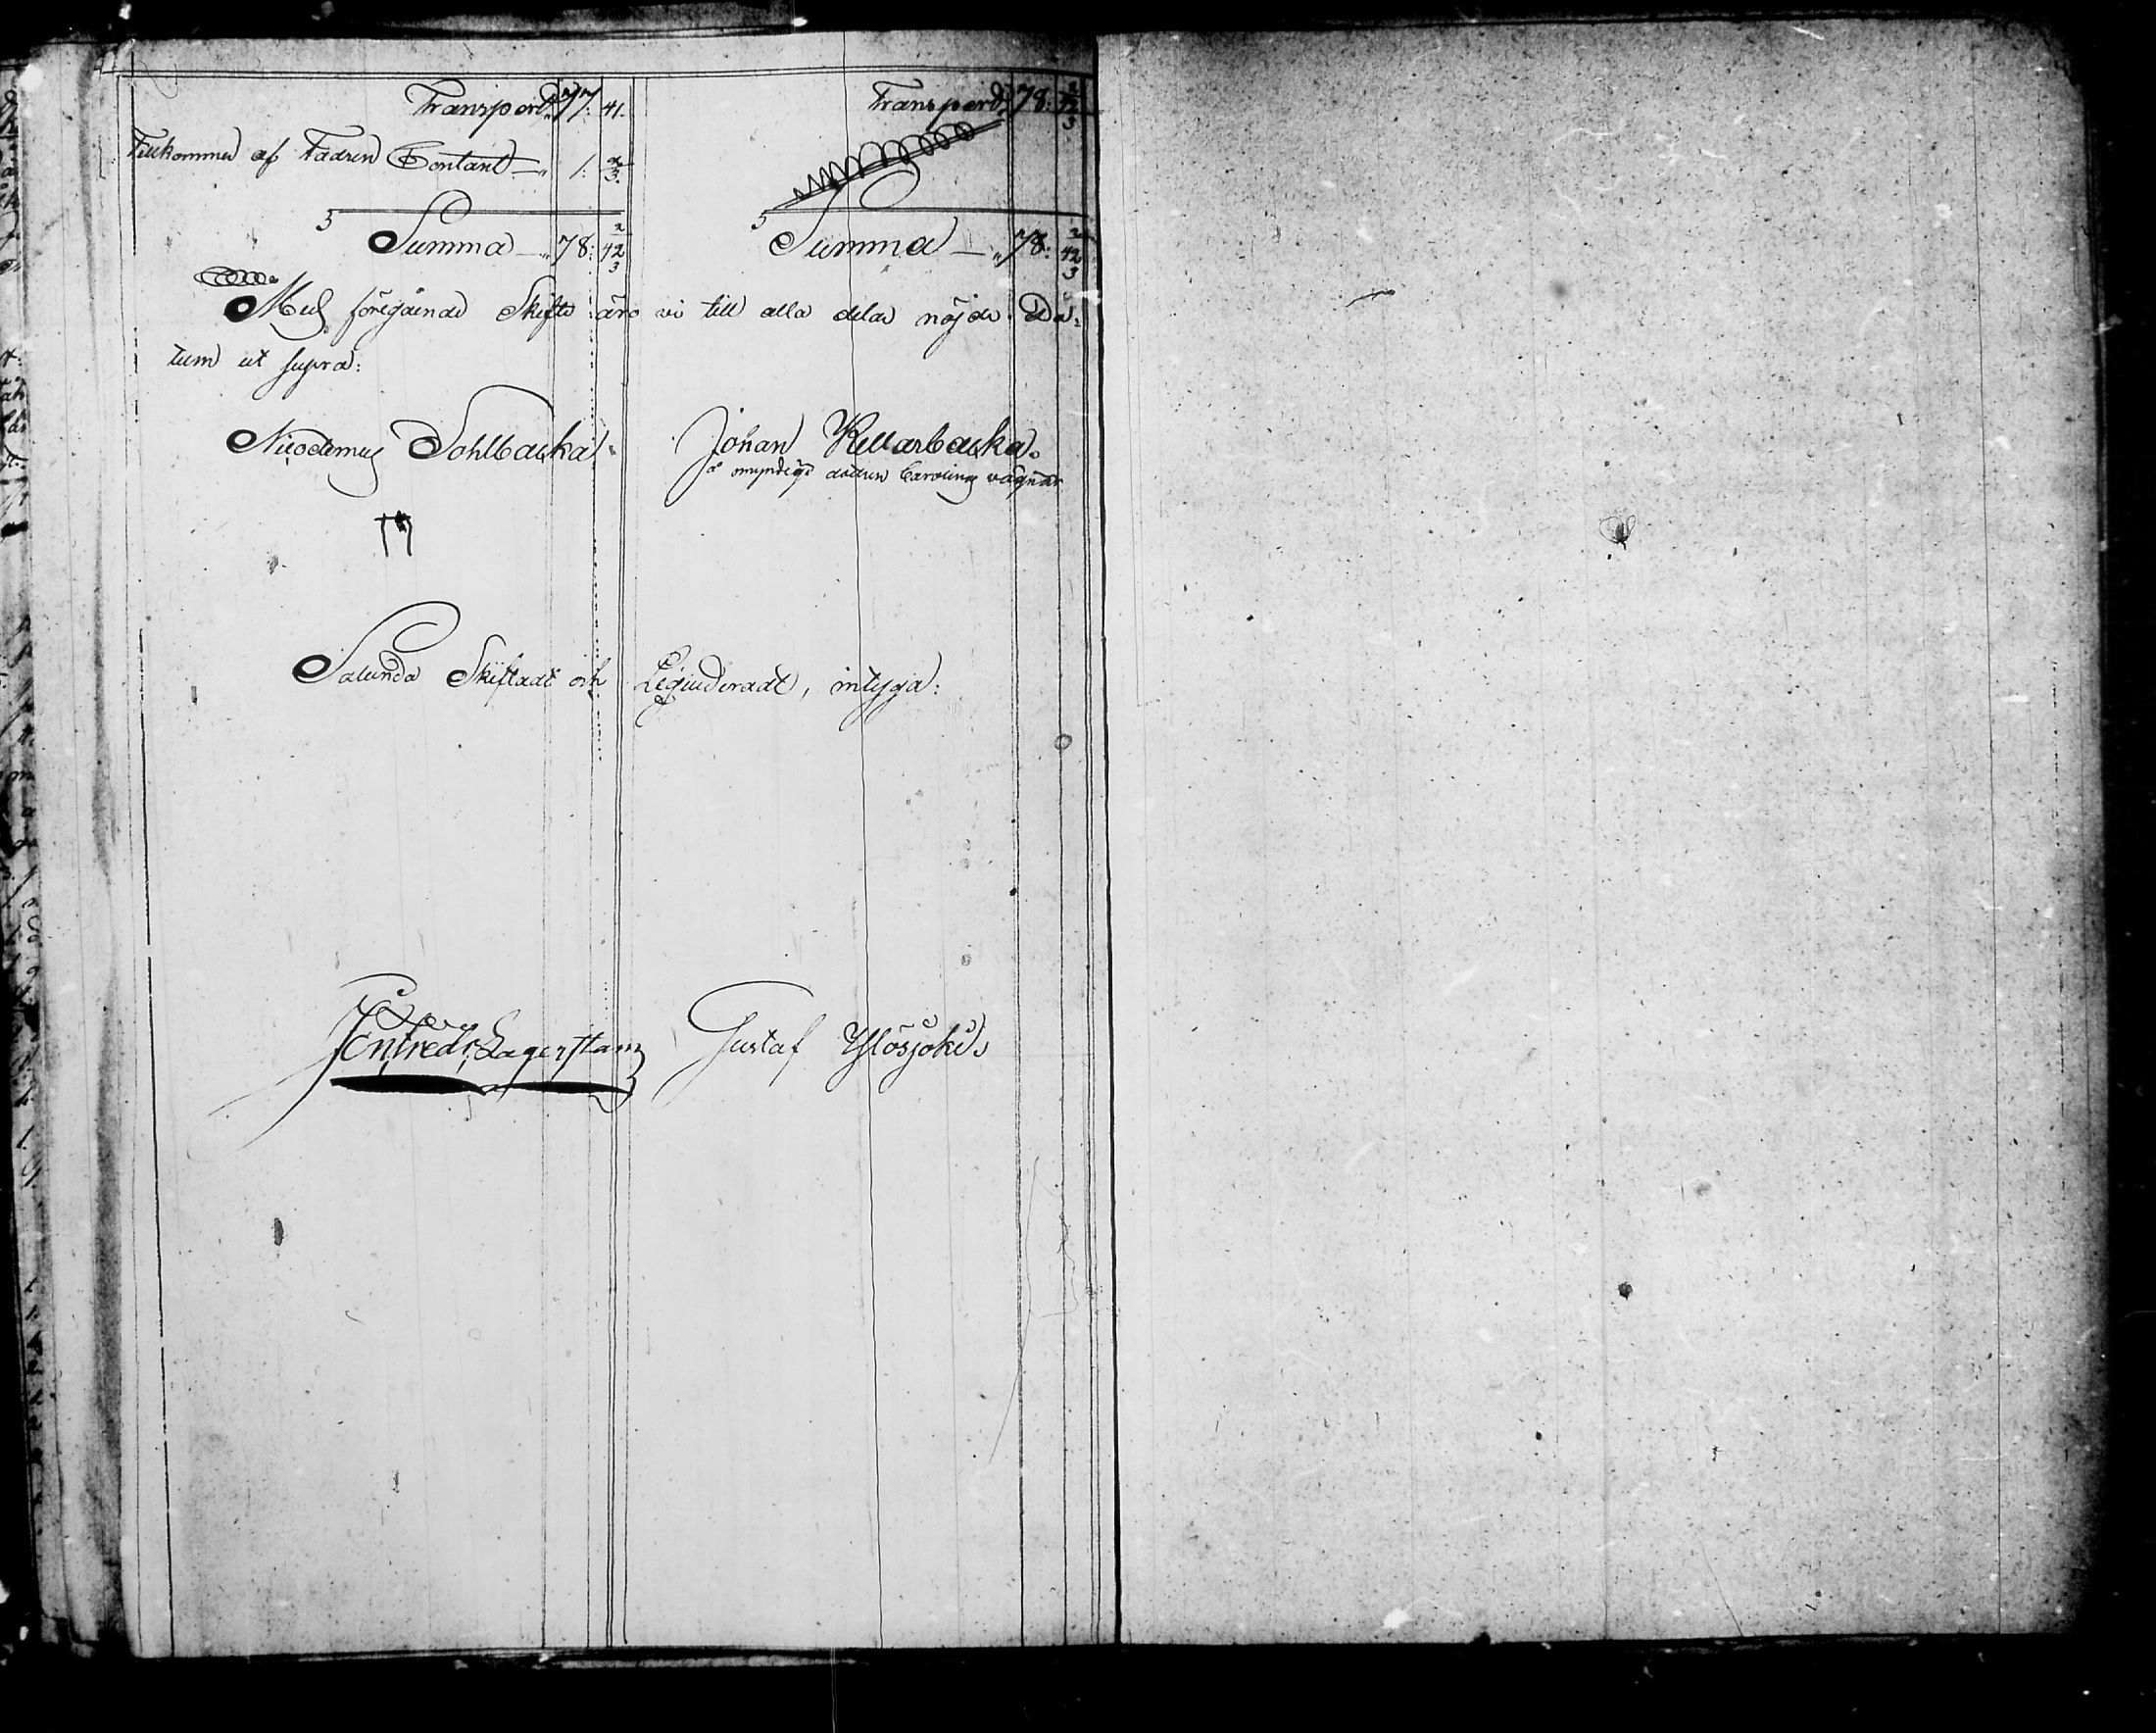 Transport 77: 41.
Tillkommer af Fadren Contant — 1: 2/3.
Summa — 78: 42 2/3
Transport 78: 42 2/3
Summa — 78: 42 2/3
Med föregående Skifte äro vi till alla delar nöjde. Da:
tum ut supra:
Nicodemus Sohlbacka
Johan Kellarbacka.
å omyndige dottren Carolinas vägnar
Salunda Skiftadt och Liquideradt, intyga:
Lagerstam
Gustaf Ylösjoki